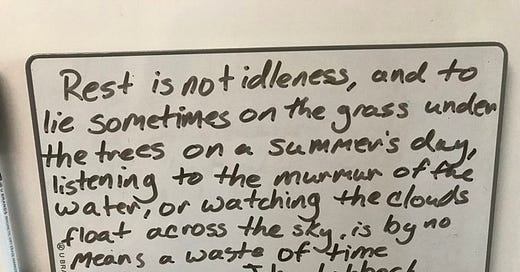 Rest is not idleness, and to
lie sometimes on the grass under
the trees on a summer's day,
listening to the murmur of the
water, or watching the clouds
float across the sky, is by no
means a waste of time